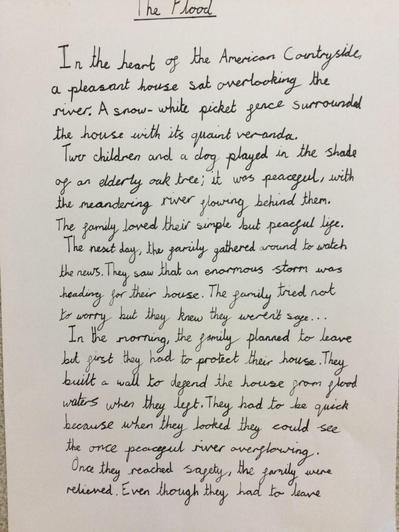 The Flood
In the heart of the American Countryside,
a pleasant house sat overlooking the
river. A snow-white picket fence surrounded
the house with its quaint veranda.
Two children and a dog played in the shade
of an elderly oak tree; it was peaceful, with
the meandering river flowing behind them.
The family loved their simple but peacful life.
The next day, the family gathered around to watch
the news. They saw that an enormous storm was
heading for their house. The family tried not
to worry but they knew they weren't safe...
In the morning, the family planned to leave
but first they had to protect their house. They
built a wall to defend the house from flood
waters when they left. They had to be quick
because when they looked they could see
the once peaceful river overflowing.
Once they reached safety, the family were
relieved. Even though they had to leave